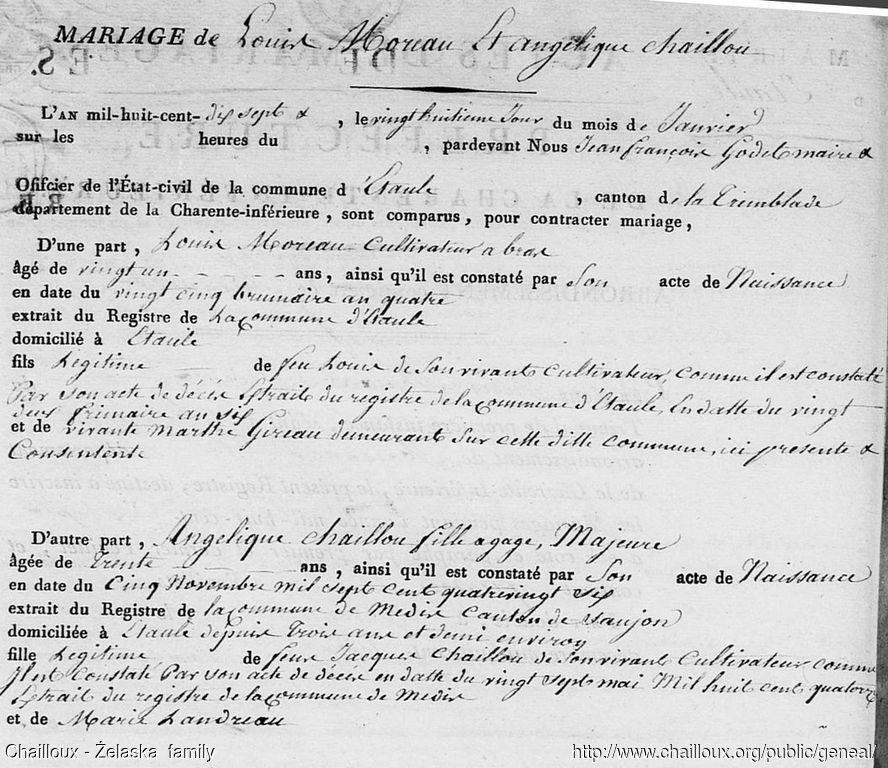 MARIAGE de Louis Moreau Et angelique chaillou
L'AN mil-huit-cent- dix sept &, le vingt huitieme Jour du mois de Janvier
sur les heures du , pardevant Nous Jean françois Godet maire &
Ofifcier de l'État-civil de la commune d'Etaule , canton de la Tremblade
département de la Charente-inférieure, sont comparus, pour contracter mariage,
D'une part, Louis Moreau cultivateur a bras
âgé de vingt un ans, ainsi qu'il est constaté par Son acte de Naissance
en date du vingt cinq brumaire an quatre
extrait du Registre de La Commune d'Etaule
domicilié à Etaule
fils Legitime de feu Louis de Son vivant cultivateur, comme il est constaté
Par Son acte de décès Extrait du registre de la commune d'Etaule, En datte du vingt
deux frimaire an six
et de vivante Marthe Gireau demeurant Sur cette ditte commune, ici presente &
Consentente
D'autre part, Angelique chaillou fille agage, Majeure
âgée de Trente ans, ainsi qu'il est constaté par Son acte de Naissance
en date du Cinq Novembre mil sept cent quatrevingt six
extrait du Registre de la commune de Medis Canton de Saujon
domiciliée à Etaule depuis Trois ans et demi environ
fille Legitime de feux Jacques Chaillou de Son vivant Cultivateur comme
Il est Constaté Par Son acte de décès en datte du vingt Sept mai Mil huit cent quatorze
Extrait du registre de la commune de Medis
et de Marie Landreau
Chailloux - Żelaska family
http://www.chailloux.org/public/geneal/